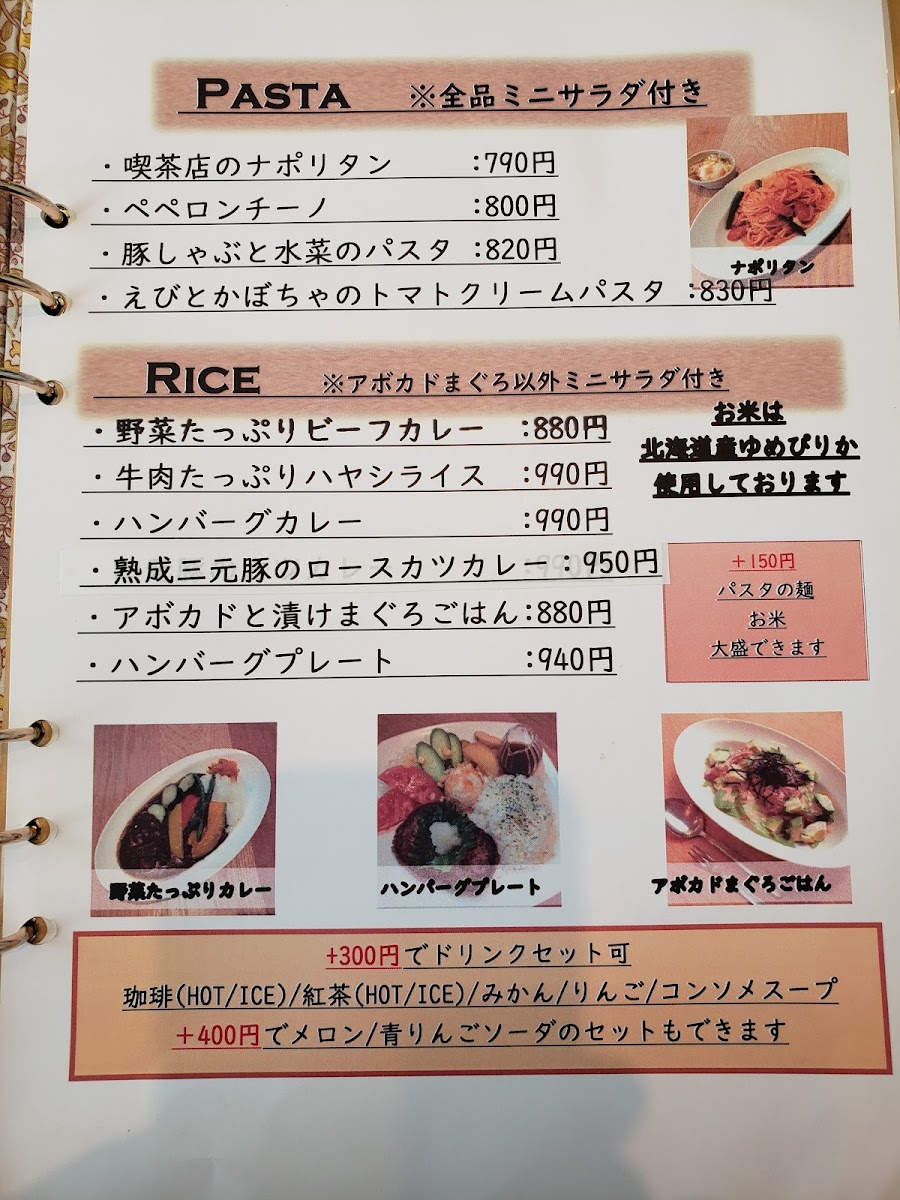 PASTA ※全品ミニサラダ付き
・喫茶店のナポリタン :790円
・ペペロンチーノ :800円
・豚しゃぶと水菜のパスタ :820円
・えびとかぼちゃのトマトクリームパスタ :830円
ナポリタン
RICE ※アボカドまぐろ以外ミニサラダ付き
・野菜たっぷりビーフカレー :880円
・牛肉たっぷりハヤシライス :990円
・ハンバーグカレー :990円
・熟成三元豚のロースカツカレー：950円
・アボカドと漬けまぐろごはん:880円
・ハンバーグプレート :940円
お米は
北海道産ゆめぴりか
使用しております
＋150円
パスタの麺
お米
大盛できます
野菜たっぷりカレー
ハンバーグプレート
アボカドまぐろごはん
+300円でドリンクセット可
珈琲(HOT/ICE)/紅茶(HOT/ICE)/みかん/りんご/コンソメスープ
＋400円でメロン/青りんごソーダのセットもできます